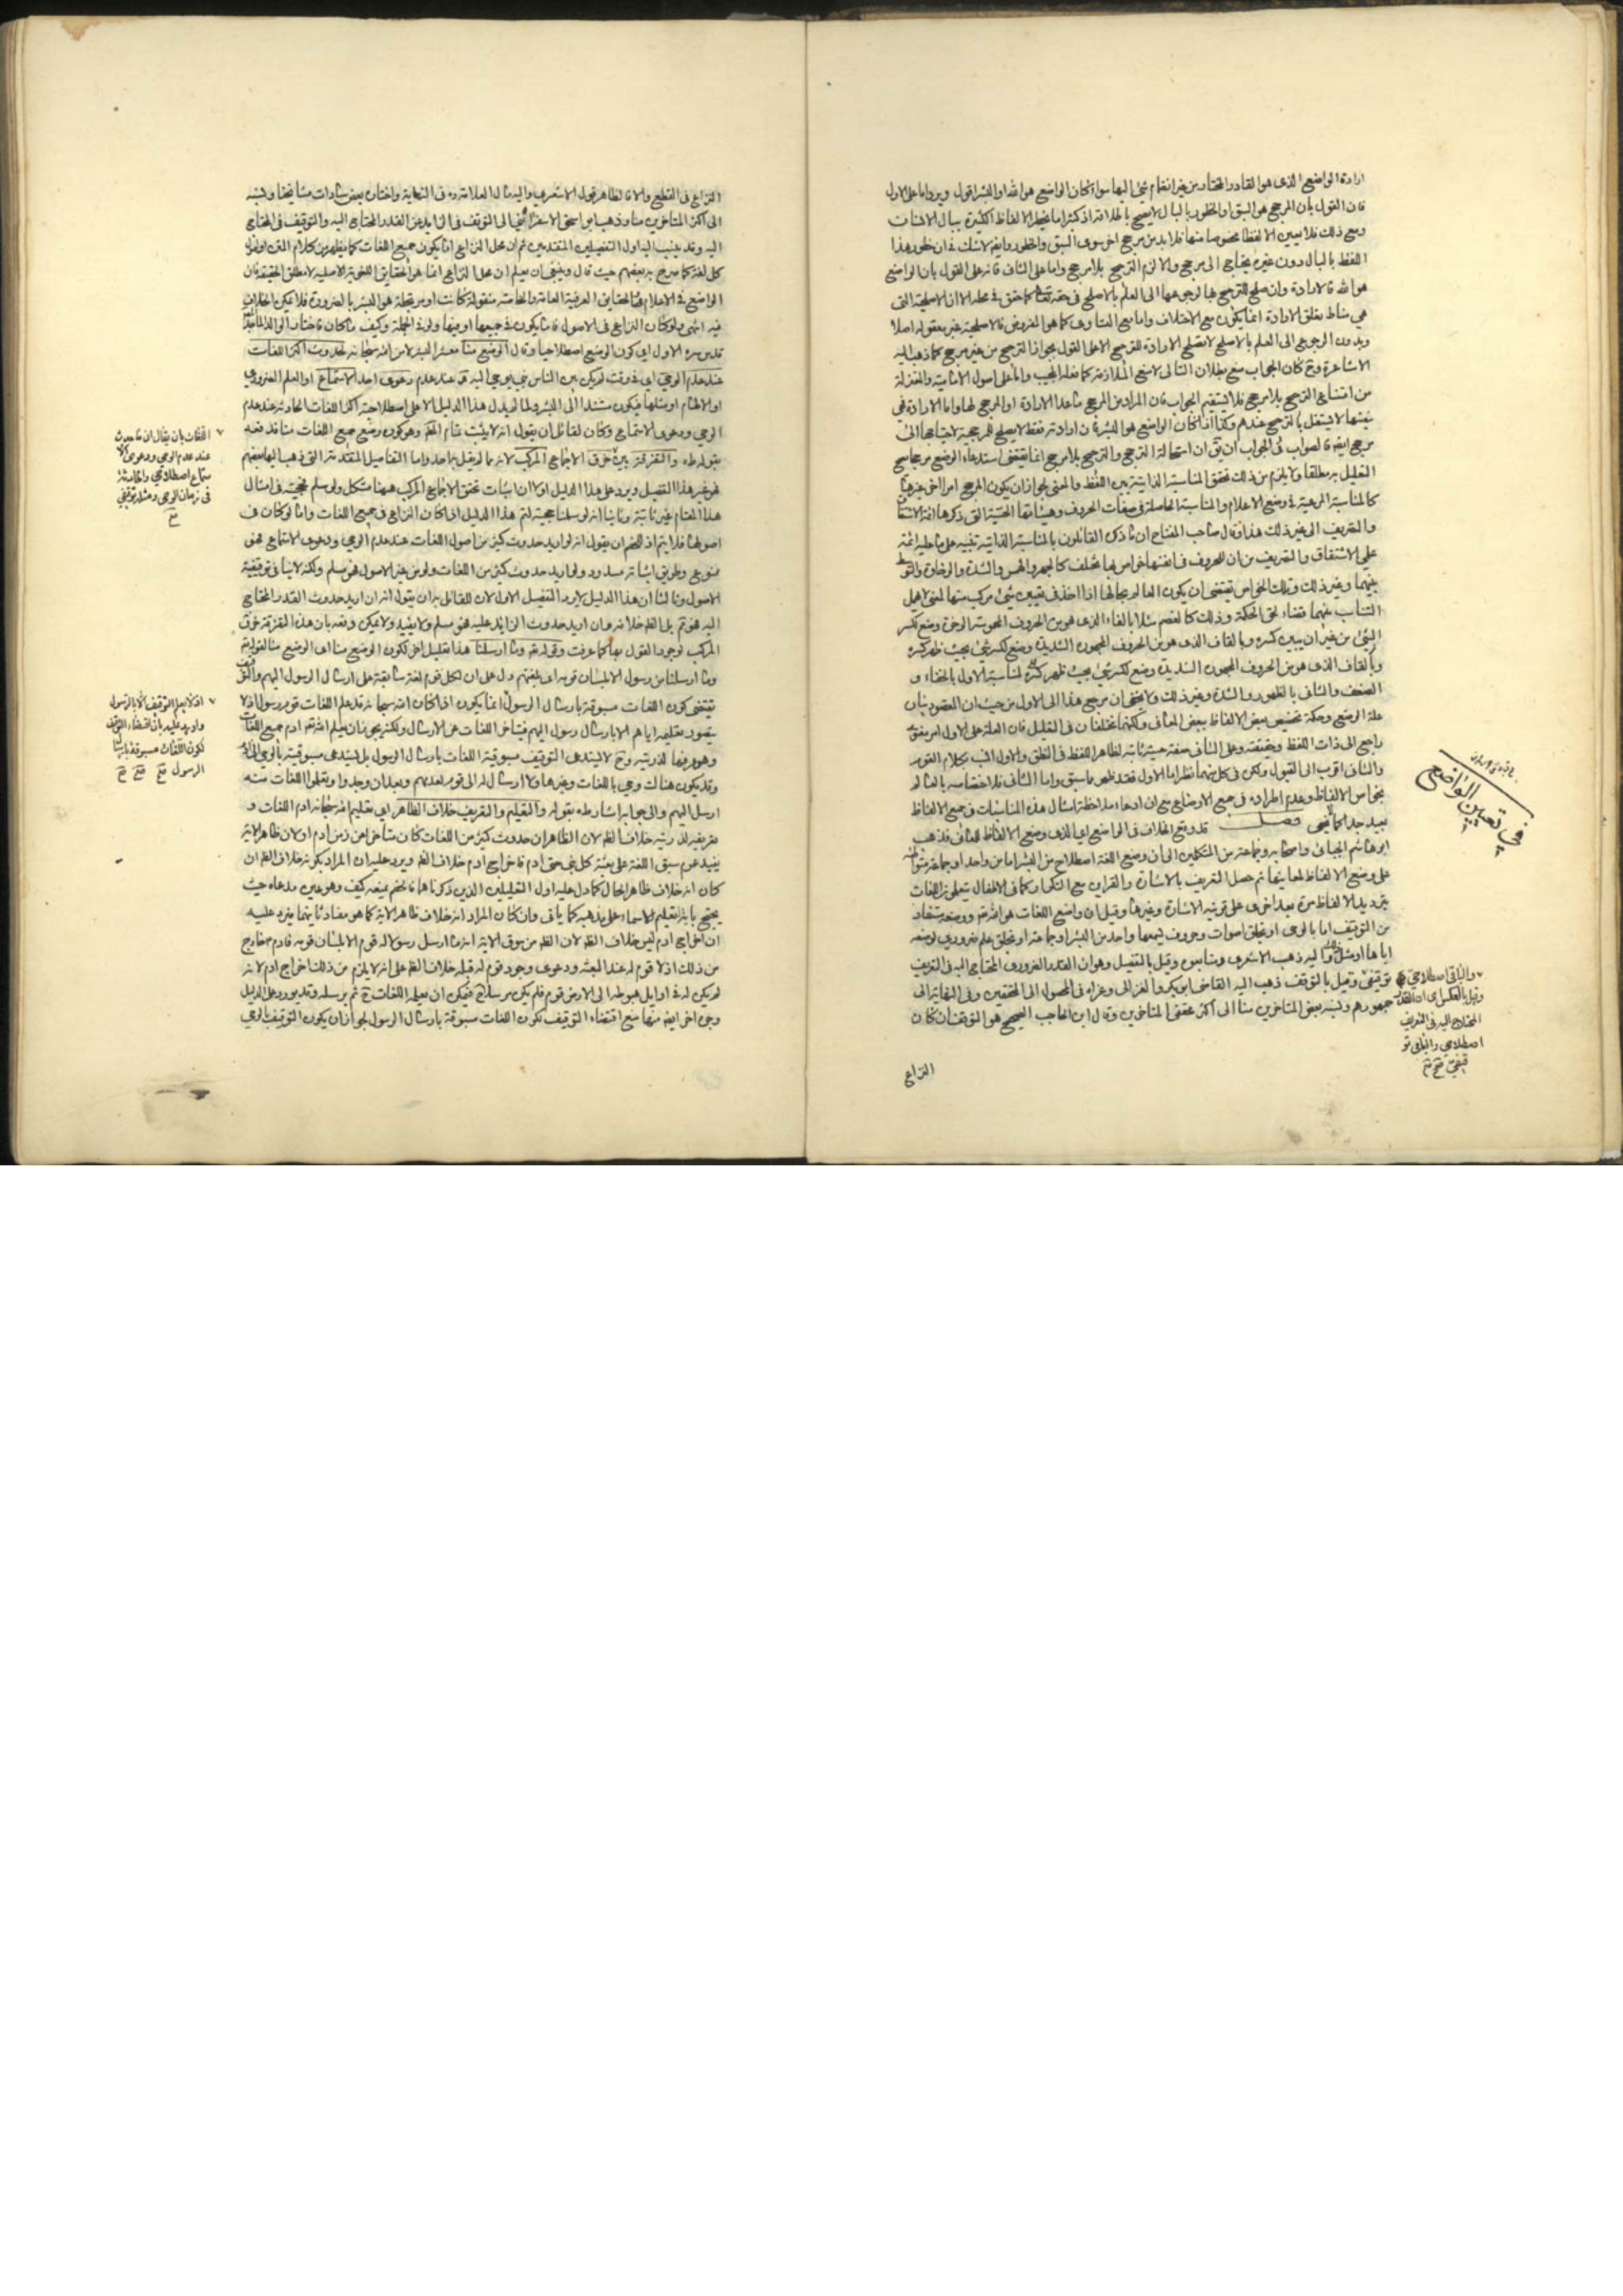 ارادة الواضع الذى هو القادر المختار من غير انضمام شئ اليها سواء كان الواضع هو الله او البشر اقول ويرد اما على الاول
فان القول بان المرجح هو السبق او الخطور بالبال لا يصح باطلاقه اذ كثيرا ما يخطر الالفاظ الكثيرة ببال الانسان
ومع ذلك فلا يعين الا لفظا مخصوصا منها فلا بد من مرجح اخر سوى السبق والخطور وايضا لا شك فى ان خطور هذا
اللفظ بالبال دون غيره يحتاج الى مرجح والا لزم الترجيح بلا مرجح واما على الثانى فانه على القول بان الواضع
هو الله فالارادة وان صلح للترجيح بها لرجوعها الى العلم بالاصلح فى حقه تعالى كما حقق فى محله الا ان الاصلحية التى
هى مناط تعلق الارادة انما يكون مع الاختلاف واما مع التساوى كما هو المفروض فالاصلحية غير معقولة اصلا
وبدون الرجوع الى العلم بالاصلح لا تصلح الارادة للترجيح الا على القول بجواز الترجيح من غير مرجح كما ذهب اليه
الاشاعرة وح كان الجواب منع بطلان التالى لا منع الملازمة كما فعله المجيب واما على اصول الامامية والمعتزلة
من امتناع الترجيح بلا مرجح فلا يستقيم الجواب فان المراد من المرجح ما عدا الارادة او المرجح لها واما الارادة فهى
بنفسها لا يستقل بالترجيح عندهم وكذا اذا كان الواضع هو البشر فان ارادته فقط لا يصلح للمرجحية لاحتياجها الى
مرجح ايضا فالصواب فى الجواب ان يق ان استحالة الترجح والترجيح بلا مرجح انما يقتضى استدعاء الوضع مرجحا
التعليل به مطلقا ولا يلزم من ذلك تحقق المناسبة الذاتية بين اللفظ والمعنى لجواز ان يكون المرجح امرا اخر غيرها
كالمناسبة المرعية فى وضع الاعلام والمناسبة الحاصلة فى صفات الحروف وهيئاتها الحسنية التى ذكرها ائمة الاشتقاق
والتصريف الى غير ذلك هذا وقال صاحب المفتاح ان ما ذكره القائلون بالمناسبة الذاتية تنبيه على ما عليه ائمة
علمى الاشتقاق والتصريف من ان للحروف فى انفسها خواص بها تختلف كالجهر والهمس والشدة والرخاوة والتوسط
بينهما وغير ذلك وتلك الخواص يقتضى ان يكون العالم بها اذا اخذ فى تعيين شئ مركب منها لمعنى لا يهمل
التناسب بينهما قضاء لحق الحكمة وذلك كالفصم مثلا بالفاء الذى هو من الحروف المهموسة الرخوة وضع لكسر
الشئ من غير ان يبين كسره وبالقاف الذى هو من الحروف المجهورة الشديدة وضع لكسر شئ بحيث ظهر كسره
وبالقاف الذى هو من الحروف المجهورة الشديدة وضع لكسر شئ بحيث ظهر كسره لمناسبة الاول بالخفاء و
الضعف والثانى بالظهور والشدة وغير ذلك ولا يخفى ان مرجع هذا الى الاول من حيث ان المقصود بيان
علة الوضع وحكمة تخصيص بعض الالفاظ ببعض المعانى ولكنهما يختلفان فى التعليل فان العلة على الاول امر
راجع الى ذات اللفظ وحقيقته وعلى الثانى صفة حسية ثابتة لظاهر اللفظ فى النطق والاول انسب بكلام القوم
والثانى اقرب الى القبول ولكن فى كل منهما نظر اما الاول فقد ظهر مما سبق واما الثانى فلاختصاصه بالعالم
بخواص الالفاظ وعدم اطراده فى جميع الاوضاع مع ان ادعاء ملاحظة امثال هذه المناسبات فى جميع الالفاظ
بعيد جدا كما لا يخفى فصل قد وقع الخلاف فى الواضع اى الذى وضع الالفاظ للمعانى فذهب
ابو هاشم الجبائى واصحابه وجماعة من المتكلمين الى ان وضع اللغة اصطلاح من البشر اما من واحد او جماعة
على وضع الالفاظ لمعانيها ثم حصل التعريف بالاشارة والقراين مع التكرار كما فى الاطفال يتعلمون اللغات
بترديد الالفاظ مرة بعد اخرى على قرينة الاشارة وغيرها وقيل ان واضع اللغات هو الله تعالى ووضعه مستفاد
من التوقيف اما بالوحى او بخلق اصوات وحروف ليسمعها واحد من البشر او جماعة او بخلق علم ضرورى لوضعه
اياها او مثل ذلك واليه ذهب الاشعرى ومتابعيه وقيل بالتفصيل وهو ان القدر الضرورى المحتاج اليه فى التعريف
توقيفى وقيل بالتوقف ذهب اليه القاضى ابو بكر والغزالى وعزاه فى المحصول الى المحققين وفى النهاية الى
جمهورهم ونسبه بعض المتاخرين منا الى اكثر محققى المتاخرين وقال ابن الحاجب الصحيح هو التوقف ان كان
فى تعيين الواضع
والباقى اصطلاحى
وقيل بالعكس اى ان القدر
المحتاج اليه فى التعريف
اصطلاحى والباقى تو
قيفى صح
النزاع
النزاع فى القطع والا فالظاهر قول الاشعرى واليه مال العلامة ره فى النهاية واختاره بعض سادات مشايخنا ونسبه
الى اكثر المتاخرين منا وذهب ابو اسحق الاسفراينى الى التوقف فى الزايد عن القدر المحتاج اليه والتوقيف فى المحتاج
اليه وقد ينسب اليه اول التفصيلين المتقدمين ثم ان محل النزاع انما يكون جميع اللغات كما يظهر من كلام القوم او اصول
كل لغة كما صرح به بعضهم حيث قال وينبغى ان يعلم ان محل النزاع انما هو الحقايق اللغوية الاصلية لا مطلق الحقيقة فان
الواضع فى الاعلام والحقايق العرفية العامة والخاصة منقولة كانت او مرتجلة هو البشر بالضرورة فلا يمكن الخلاف
فيه انتهى ولو كان النزاع فى الاصول فاما يكون فى جميعها او بعضها ولو فى الجملة وكيف ما كان فاختار الوالد الماجد
قدس سره الاول اى كون الوضع اصطلاحيا وقال الوضع منا معشر البشر لا من الله سبحانه لحدوث اكثر اللغات
عند عدم الوحى اى فى وقت لم يكن بين الناس نبى يوحى اليه وعند عدم دعوى احد الاستماع او العلم الضرورى
او الالهام او مثلها فيكون مستندا الى البشر ولما لم يدل هذا الدليل الا على اصطلاحية اكثر اللغات الحادثة عند عدم
الوحى ودعوى الاستماع وكان لقائل ان يقول انه لا يثبت تمام المدعى وهو كون وضع جميع اللغات منا فدفعه
بقوله طه والتفرقة بين خرق الاجماع المركب لانه ما لم يقل به احد واما التفاصيل المقدمة التى ذهب اليها بعضهم
فهو غير هذا التفصيل ويرد على هذا الدليل اولا ان اثبات تحقق الاجماع المركب ههنا مشكل ولو سلم فحجيته فى امثال
هذا المقام غير ثابتة وثانيا انه لو سلمنا حجيته لتم هذا الدليل اذا كان النزاع فى جميع اللغات واما لو كان فى
اصولها فلا يتم اذ للخصم ان يقول انه لو اريد حدوث كثير من اصول اللغات عند عدم الوحى ودعوى الاستماع فهو
ممنوع وطريق اثباته مسدود ولو اريد حدوث كثير من اللغات ولو من غير الاصول فهو مسلم ولكنه لا ينافى توقيفية
الاصول وثالثا ان هذا الدليل لا يرد التفصيل الاول لان للقائل به ان يقول انه ان اريد حدوث القدر المحتاج
اليه فهو ثم بل الظاهر خلافه وان اريد حدوث الزايد عليه فهو مسلم ولا يفيد ولا يمكن دفعه بان هذه التفرقة خرق
المركب لوجود القول بها كما عرفت وقوله تعالى وما ارسلنا هذا تعليل اخر لكون الوضع منا اى الوضع منا لقوله تعالى
وما ارسلنا من رسول الا بلسان قومه اى بلغتهم دل على ان لكل قوم لغة سابقة على ارسال الرسول اليهم والتوقيف
يقتضى كون اللغات مسبوقة بارسال الرسول انما يكون اذا كان الله سبحانه قد علم اللغات قوم رسول اذ لا
يتصور تعليمه اياهم الا بارسال رسول اليهم فيتاخر اللغات عن الارسال ولكنه يجوز ان يعلم الله تعالى ادم جميع اللغات
وهو يعرفها لذريته وح لا يستدعى التوقيف مسبوقية اللغات بارسال الرسول بل يستدعى مسبوقيته بالوحى الى ادم
وقد يكون هناك وحى باللغات وغيرها ولا ارسال له الى قوم لعدمهم وبعد ان وجدوا وتعلموا اللغات منه
ارسل اليهم والى جوابه اشار طه بقوله والتعليم والتعريف خلاف الظاهر اى تعليم الله سبحانه ادم اللغات و
تعريفه لذريته خلاف الظ لان الظاهر ان حدوث كثير من اللغات كان متاخرا عن زمن ادم او لان ظاهر الاية
يفيد عموم سبق اللغة على بعثة كل نبى حتى ادم فاخراج ادم خلاف الظ ويرد عليه ان المراد بكونه خلاف الظ ان
كان انه خلاف ظاهر الحال كما دل عليه اول التعليلين الذين ذكرناهما فالخصم يمنعه كيف وهو عين مدعاه حيث
يحتج باية تعليم الاسماء على مذهبه كما ياتى وان كان المراد انه خلاف ظاهر الاية كما هو مفاد ثانيهما فيرد عليه
ان اخراج ادم ليس خلاف الظ لان الظ من سوق الاية انه ما ارسل رسول له قوم الا بلسان قومه فادم خارج
من ذلك اذ لا قوم له عند البعثة ودعوى وجود قوم له قبله خلاف الظ على انه لا يلزم من ذلك اخراج ادم لانه
لم يكن له فى اوايل هبوطه الى الارض قوم فلم يكن مرسلا ح فيمكن ان يعلمه اللغات ح ثم يرسله وقد يورد على الدليل
وجوه اخر ايضا منها منع اقتضاء التوقيف لكون اللغات مسبوقة بارسال الرسول لجواز ان يكون التوقيف بالوحى
اللغات بان يقال ان ما حدث
عند عدم الوحى ودعوى الا
ستماع اصطلاحى والحادثة
فى زمان الوحى ومثله توقيفى
صح
اذ لا يعلم التوقيف الا بالرسول
واورد عليه بان اقتضاء التوقيف
لكون اللغات مسبوقة بارسال
الرسول صح